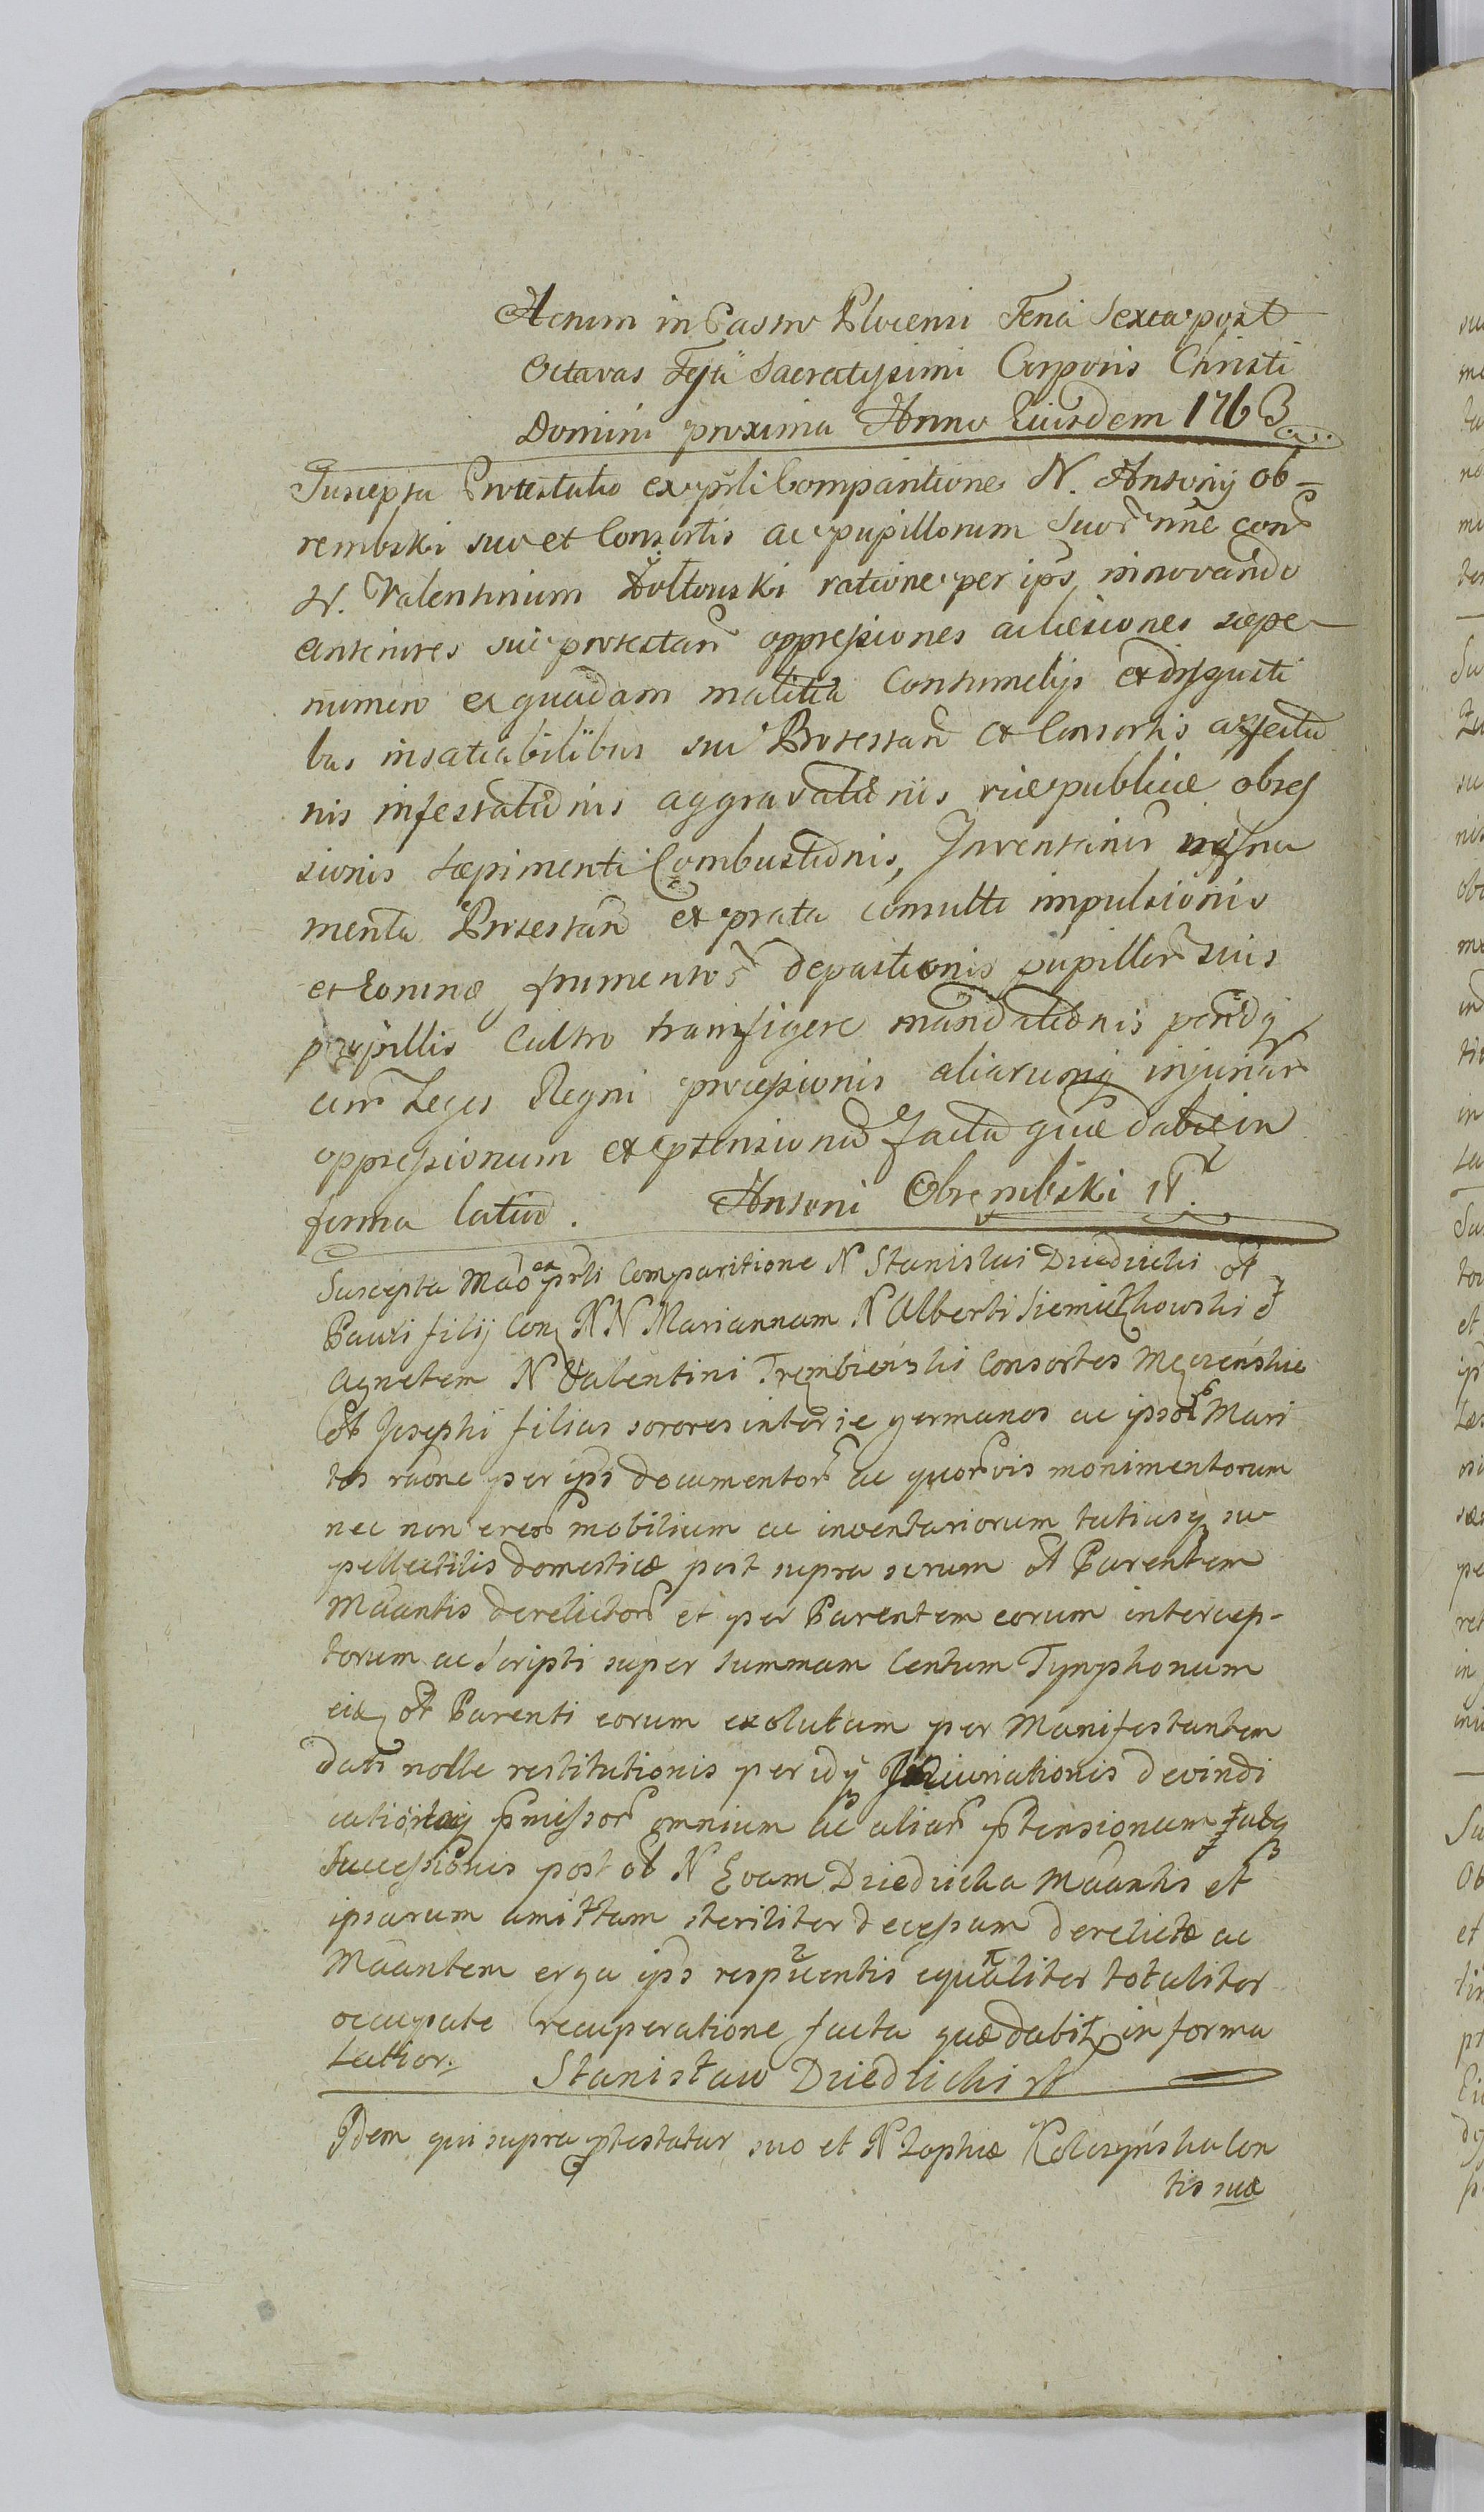 Actum in Castro Plocensi Feria Sexta post
Octavas Festi Sacratissimi Corporis Christi
Domini proxima Anno Eiusdem 1763
Suscepta Protestatio ex prsli Comparitione N. Antonij Ob-
rembski suo et Consortis ac pupillorum Suor nne con
N. Valentinum Żołtowski ratione per ips innovando
anteriores sui protestan oppressiones ac læsiones sæpe
numero ex quadam malitia Contumelijs et disgusti
bus insatiabilibus sui Protestan et Consortis affectio
nis infestationis aggravationis viæ publicæ obses
sionis sæpimenti Combustionis, Inventarior in fru
menta Protestan et prata consulte impulsionis
et eorum frumentor depastionis pupillor suis
pupillis cultro transfigere mandationis peridq
con Leges Regni processionis aliarumq injuriar
oppressionum et ptensionu facta quæ dabit in
forma latiori. Antoni Obrembski
Suscepta Mao ex prsli Comparitione N Stanislai Dziedzicki ol
Pauli filij Con NN Mariannam N Alberti Siemiątkowski et
Agnetem N Valentini Trembiński Consortes Męczeńskie
ol Josephi filias sorores inter se germanas ac ipsor Mari
tos raone per ips documentor ac quorvis monimentorum
nec non eres mobilium ac inventariorum totiusq su
pellectilis domesticæ post supra serum ol Parentem
Maantis derelictor et per Parentem eorum intercep-
torum ac Scripti super summam Centum Tymphonum
eidq ol Parenti eorum exolutam per Manifestantem
dati nolle restitutionis per idq Iniuriationis devindi
cationisq pmissor omnium ac aliar ptensionum totq
Successionis post ol N Evam Dziedzicka Maantis et
ipsarum amittam steriliter decessam derelictæ ac
Maantem erga ips respuentis equaliter totaliter
occupate recuperatione facta quæ dabit in forma
Latior. Stanisław Dziedzicki
Idem qui supra ptestatur suo et N Zophiæ Con
tis suæ